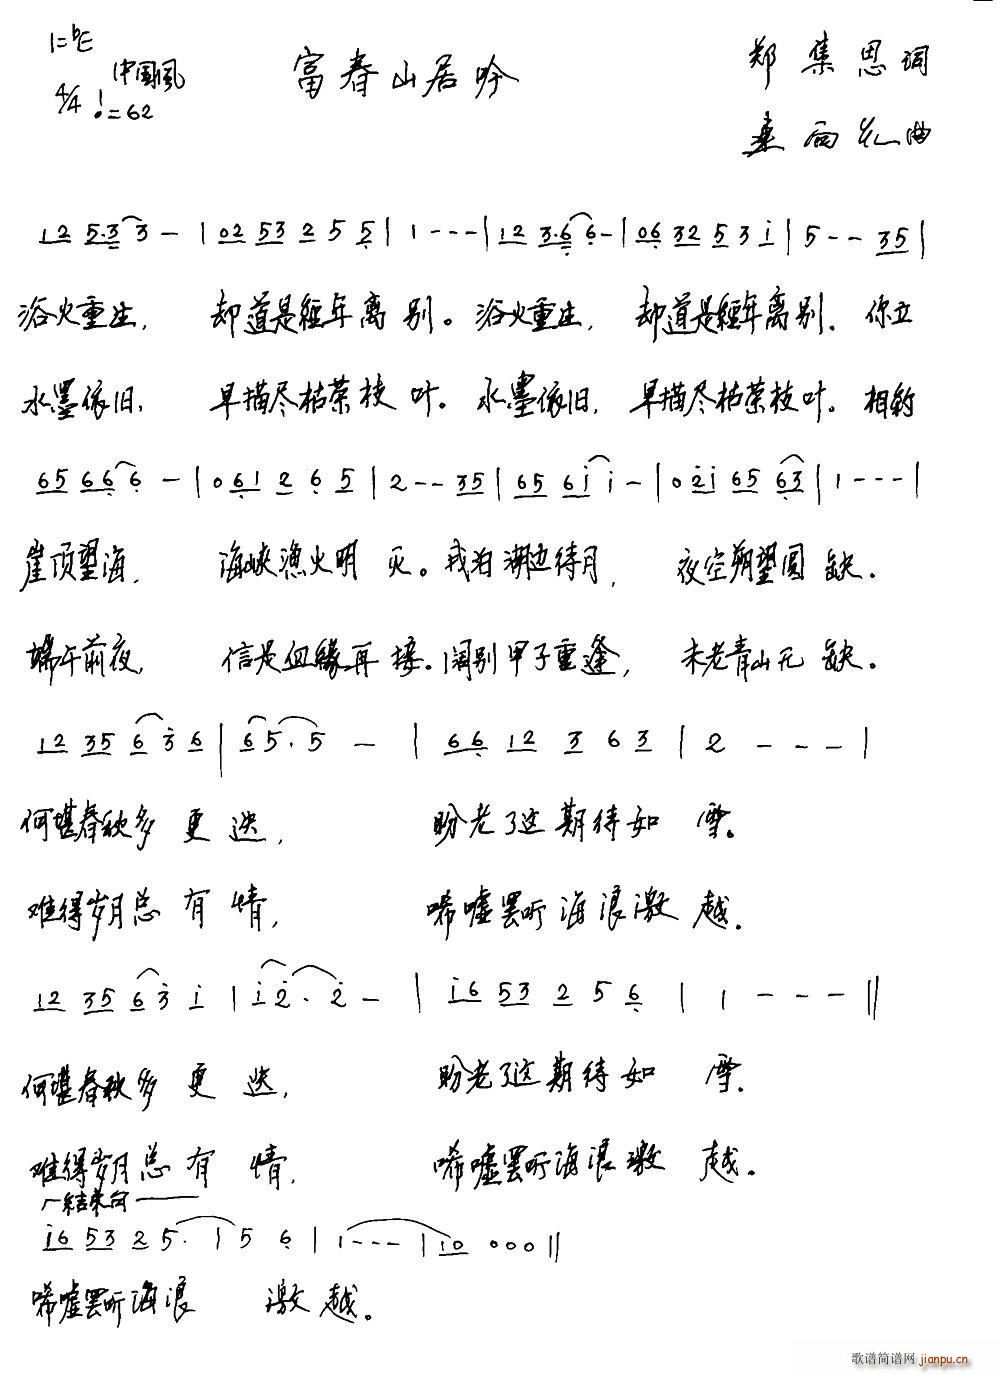 1=♭E
中国风
4/4 ♩=62
富春山居吟
郑集恩词
桑雨花曲
12 5·3 3 - | 02 53 2 5 5 | 1 - - - | 12 3·6 6 - | 06 32 5 3 i | 5 - - 35 |
浴火重生, 却道是經年离别。浴火重生, 却道是經年离别. 你立
水墨依旧, 早描尽枯荣枝叶。水墨依旧, 早描尽枯荣枝叶。相約
65 66 6 - | 0 61 2 6 5 | 2 - - 35 | 65 6i i - | 0 2i 65 63 | 1 - - - |
崖顶望海, 海峡漁火明灭。我泊湖边待月, 夜空朔望圆缺.
端午前夜, 信是血緣再接. 阔别甲子重逢, 未老青山无缺。
12 35 6 3 6 | 65· 5 - | 66 12 3 6 3 | 2 - - - |
何堪春秋多更迭, 盼老了这期待如雪.
难得岁月总有情, 唏嘘罢听海浪激越.
12 35 6 3 i | i2· 2 - | i6 53 2 5 6 | 1 - - - ||
何堪春秋多更迭, 盼老了这期待如雪.
难得岁月总有情, 唏嘘罢听海浪激越.
结束句
i6 53 2 5· | 5 6 | 1 - - - | 10 000 ||
唏嘘罢听海浪激越。
歌谱简谱网 jianpu.cn